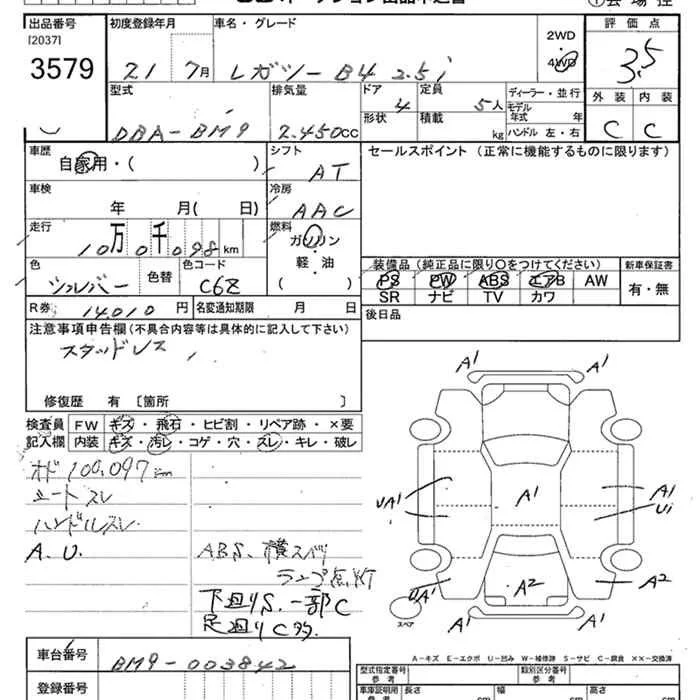 出品番号 初度登録年月 車名・グレード 評価点
[2037]
3579 21 7月 レガシー B4 2.5i 2WD 4WD 3.5
型式 排気量 ドア 4 定員 5人 ディーラー・並行 外装 内装
モデル年式 年
DBA-BM9 2.450cc 形状 積載 kg ハンドル 左・右 C C
車歴 シフト セールスポイント (正常に機能するものに限ります)
自家用・( ) AT
車検 冷房
年 月( 日) AAC
走行 燃料
10万0千098km ガソリン
軽・油
( )
色 色替 色コード 装備品 (純正品に限り○をつけてください) 新車保証書
シルバー C6Z PS PW ABS エアB AW 有・無
SR ナビ TV カワ
R券 14010円 名変通知期限 月 日 後日品
注意事項申告欄(不具合内容等は具体的に記入して下さい)
スタッドレス
修復歴 有 〔箇所
検査員 FW キズ・飛石・ヒビ割・リペア跡・×要
記入欄 内装 キズ・汚レ・コゲ・穴・スレ・キレ・破レ
オド100,097km
シートスレ
ハンドルスレ
A.U. ABS、横スベリ
ランプ点灯
下廻りS、一部C
足廻りC多
A1 A1
UA1 A1 A1
U1
UA1 A2 A2
スペア A1 A1
A-キズ E-エクボ U-凹み W-補修跡 S-サビ C-腐食 ××-交換済
車台番号 BM9-003842
登録番号
型式指定番号 参考 類別区分番号 参考
車庫証明用 参考 長さ cm 幅 cm 高さ cm